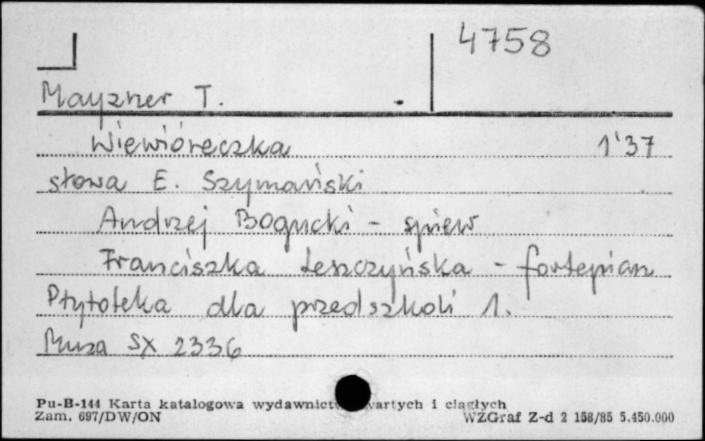 4758
Mayzner T.
Wiewióreczka 1'37
słowa E. Szymański
Andrzej Bogucki - śpiew
Franciszka Leszczyńska - fortepian
Płytoteka dla przedszkoli 1.
Muza SX 2336
Pu-B-144 Karta katalogowa wydawnictw zwartych i ciągłych
Zam. 697/DW/ON WZGraf Z-d 2 158/85 5.450.000